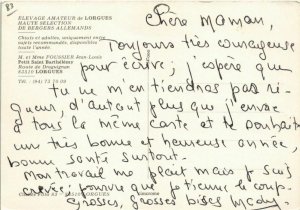 83
ELEVAGE AMATEUR de LORGUES
HAUTE SELECTION
DE BERGERS ALLEMANDS
Chiots et adultes, uniquement
sujets recommandés, disponibles
toute l'année.
M. et Mme FOURNIER Jean-Louis
Petit Saint Barthélémy
Route de Draguignan
83510 LORGUES
Tél. : (94) 73 70 03
Chère Maman,
Toujours très courageuse
pour écrire; j'espère que
tu ne m'en tiendras pas ri-
gueur, d'autant plus que j'envoie
à tous la même carte et te souhaite
un très bonne et heureuse année,
bonne santé surtout.
Mon travail me plaît mais je suis
crevée, pourvu que je tienne le coup.
Grosses, grosses bises